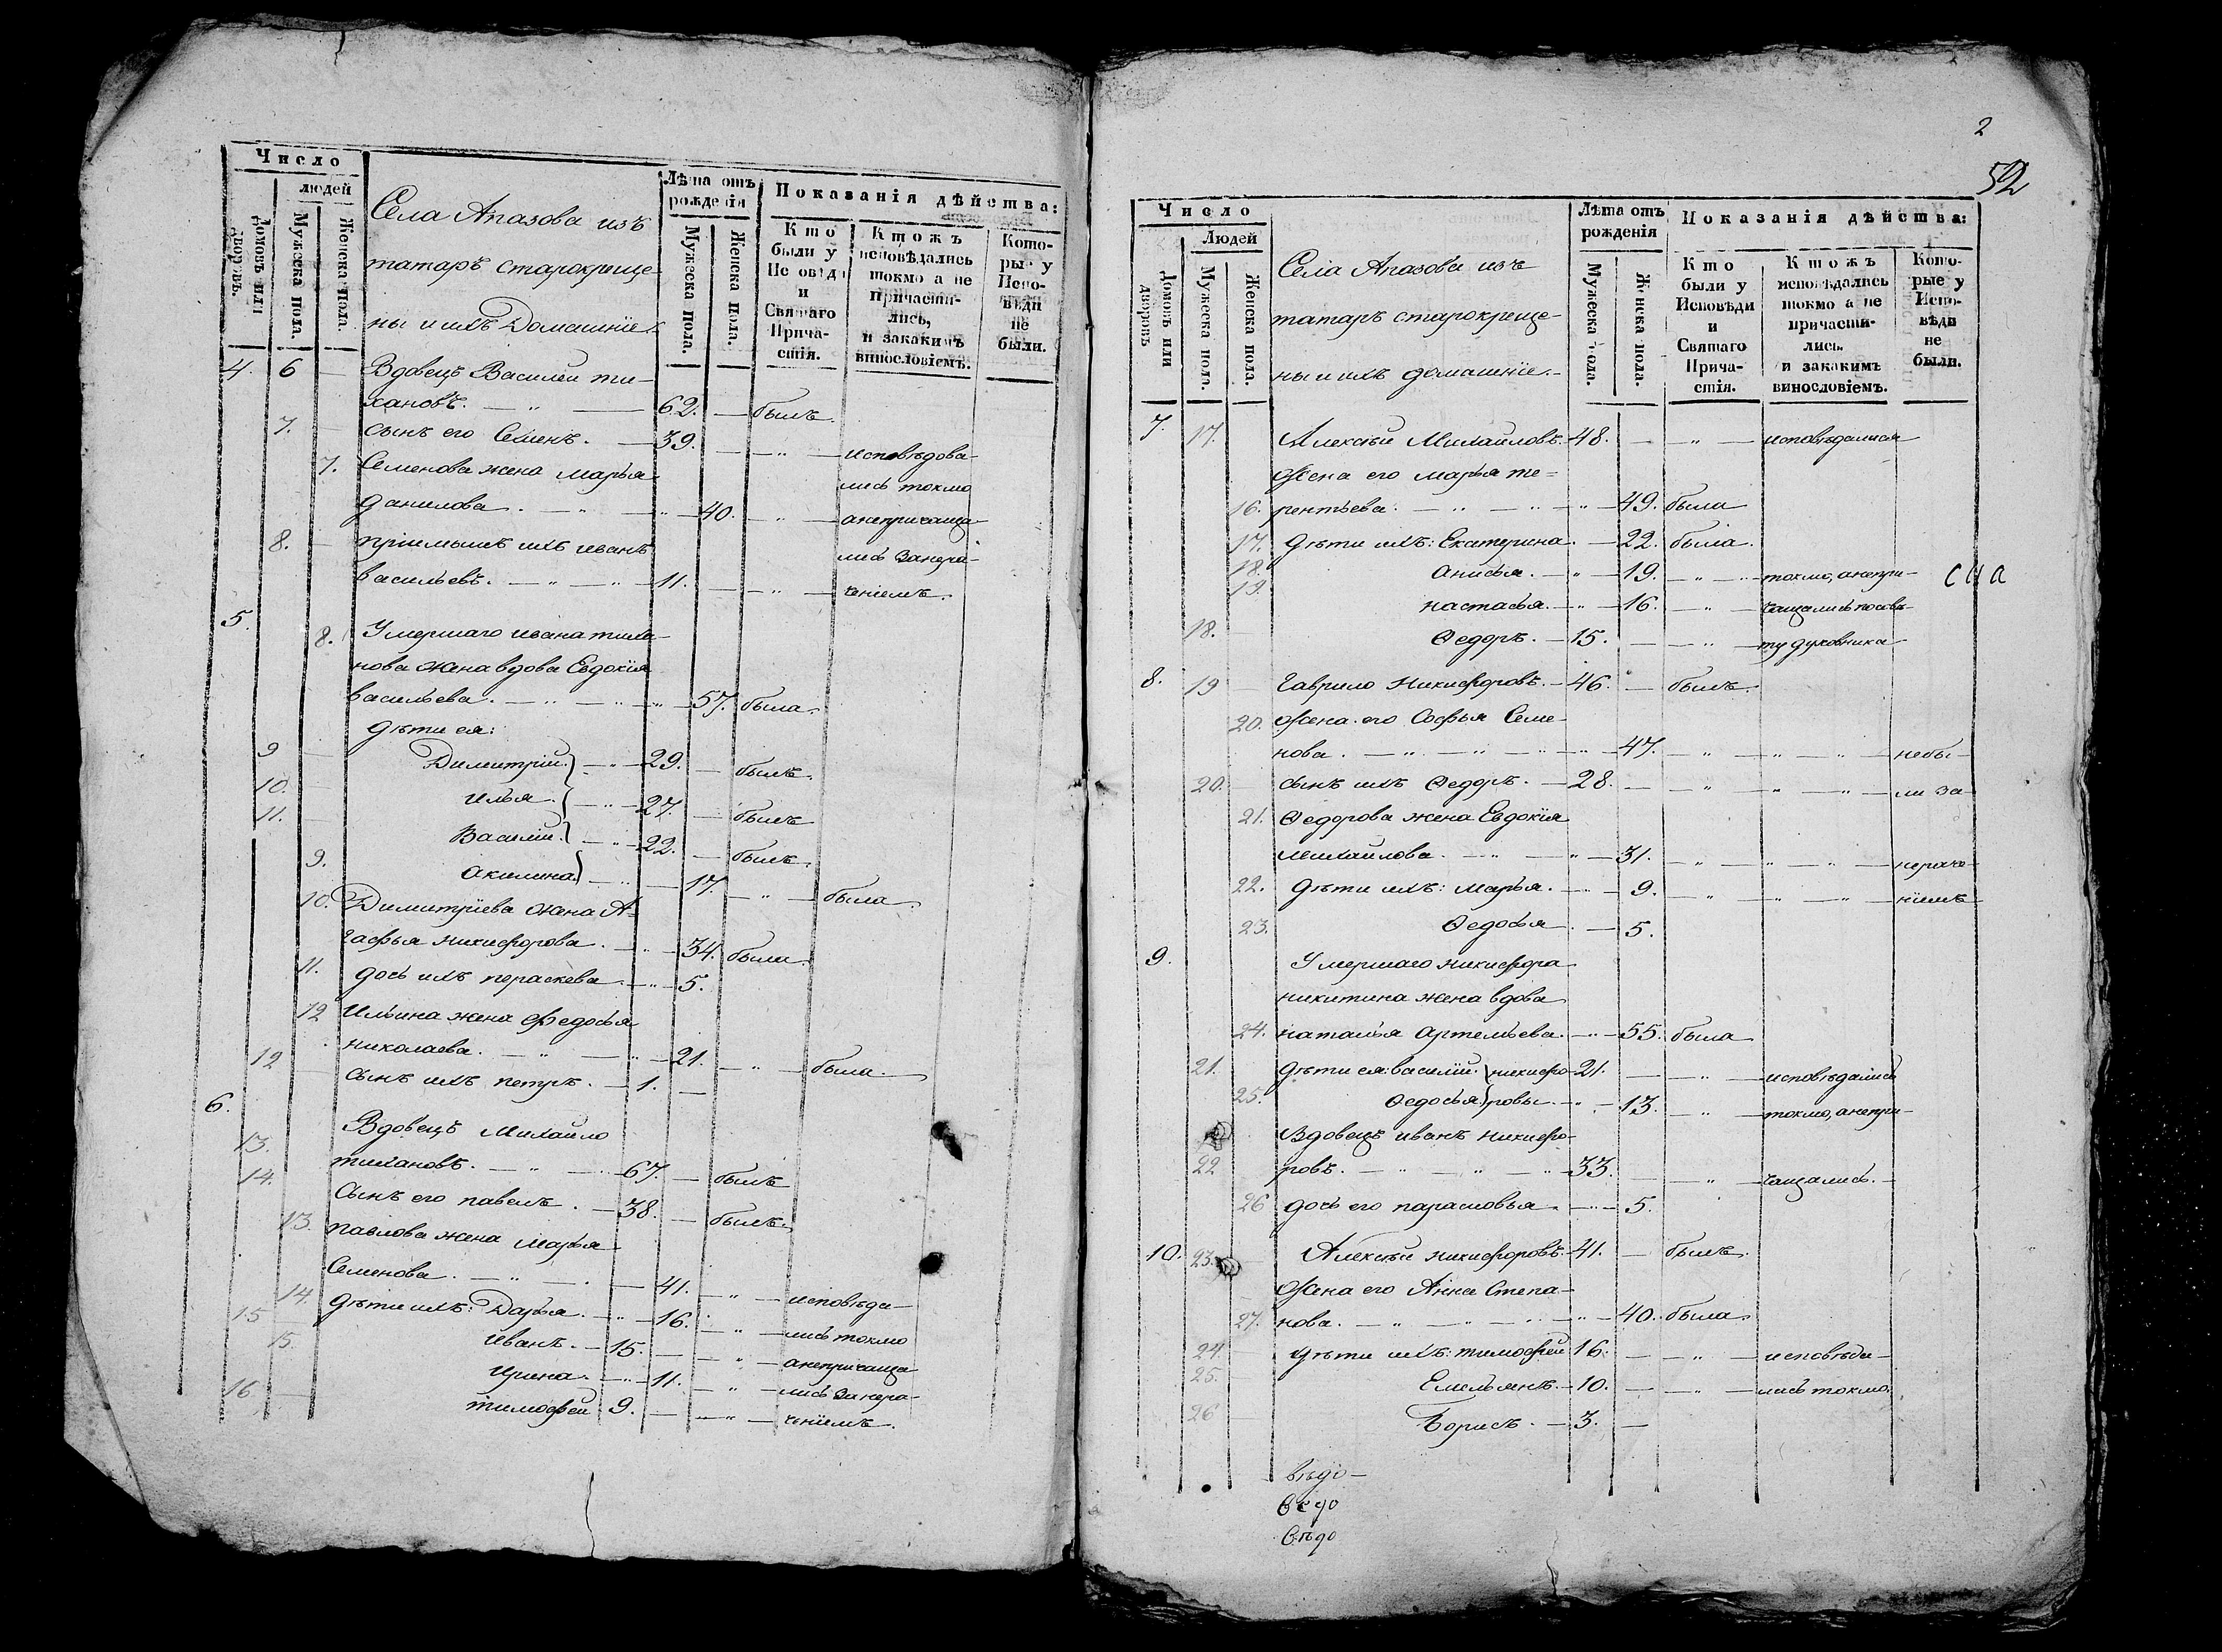 Число
людей
Домовъ или дворовъ.
Мужеска пола.
Женска пола.
Села Апазова изъ
татаръ старокреще-
ны и ихъ Домашніе.
Лѣта отъ рожденія
Мужеска пола.
Женска пола.
Показанія дѣйства:
Кто были у Исповѣди и Святаго Причастія.
Ктожъ исповѣдались токмо а не причастились, и закакимъ винословіемъ.
Которые у Исповѣди не были.
4. 6 — Вдовецъ Василей ти-
хановъ. — „ — 62. — былъ.
7. — сынъ его Семенъ. — 39. — — „ — исповѣдова-
7. Семенова жена марья
лись токмо
данилова. — „ — 40. — „ — анепричаща-
8. — пріемышъ ихъ иванъ
лись занера-
васильевъ. — „ — „ — 11. — — „ — ченіемъ.
5.
8. Умершаго ивана тиха-
нова жена вдова Евдокія
васильева. — „ — „ — 57. была.
дѣти ея:
9 — Димитрій. — „ — 29. — былъ.
10. — илья. — „ — 27. — былъ
11. — Василій. — „ — 22. — былъ.
9. акилина. — „ — 17. — „ — была.
10. Димитріева жена А-
гафья никифорова. — „ — 34. была.
11. дочь ихъ параскева. — „ — 5.
12 Ильина жена Федосья
николаева. — „ — „ — 21. — „ — была.
12 — сынъ ихъ петръ. — 1. —
6.
13. Вдовецъ Михайло
тихановъ. — „ — 67. — былъ
14. Сынъ его павелъ. — 38. — былъ.
13. павлова жена марья
Семенова. — „ — 41. — „ — исповѣда-
14. дѣти ихъ: Дарья. — „ — 16. — „ — лись токмо
15 иванъ. — 15. — — „ — анепричаща
15. ирина. — „ — 11. — „ — лись занера-
16 — тимофей 9. — — „ — ченіемъ.
2
52
Число
Людей
Домовъ или дворовъ
Мужеска пола.
Женска пола.
Села Апазова изъ
татаръ старокреще-
ны и ихъ домашніе.
Лѣта отъ рожденія
Мужеска пола.
Женска пола.
Показанія дѣйства:
Кто были у Исповѣди и Святаго Причастія.
Ктожъ исповѣдались токмо а не причастились. и закакимъ винословіемъ.
Которые у Исповѣди не были.
7. 17. Алексѣй Михайловъ. 48. — „ — исповѣдалися
Жена его марья те-
16. рентьева. — „ — „ — 49. была
17. дѣти ихъ: Екатерина. — 22. была.
18. анисья. — „ — 19. — „ — токмо, анепри-
19. настасья. — „ — 16. — „ — чащались посовѣ-
18. Ѳедоръ. — 15. — — „ — ту духовника
8. 19 — Гаврило никифоровъ. — 46. — былъ.
20. Жена его Софья Семе-
нова. — „ — „ — 47. — „ — „ — небы-
20. — сынъ ихъ Ѳедоръ. — 28. — „ — „ — ли за-
21. Ѳедорова жена Евдокія
михайлова. — „ — 31. — „ — „ — нераче-
22. дѣти ихъ: марья. — „ — 9. — „ — „ — ніемъ
23. Ѳедосья. — 5.
9. Умершаго никифора
никитина жена вдова
24. наталья артемьева. — „ — 55. была
21. дѣти ея: василій. никифо- 21. — — „ — исповѣдались
25. Ѳедосья. ровы. — „ — 13. — „ — токмо, анепри-
Вдовецъ иванъ никифо-
22 ровъ. — „ — „ — 33. — „ — чащались.
26 дочь его парасковья. — „ — 5.
10. 23. Алексѣй никифоровъ. 41. — былъ.
Жена его Анна Степа-
27. нова. — „ — „ — 40. была.
24 дѣти ихъ: тимофей 16. — „ — исповѣда-
25. Емельянъ. — 10. — „ — лись токмо.
26 Борисъ. — 3. —